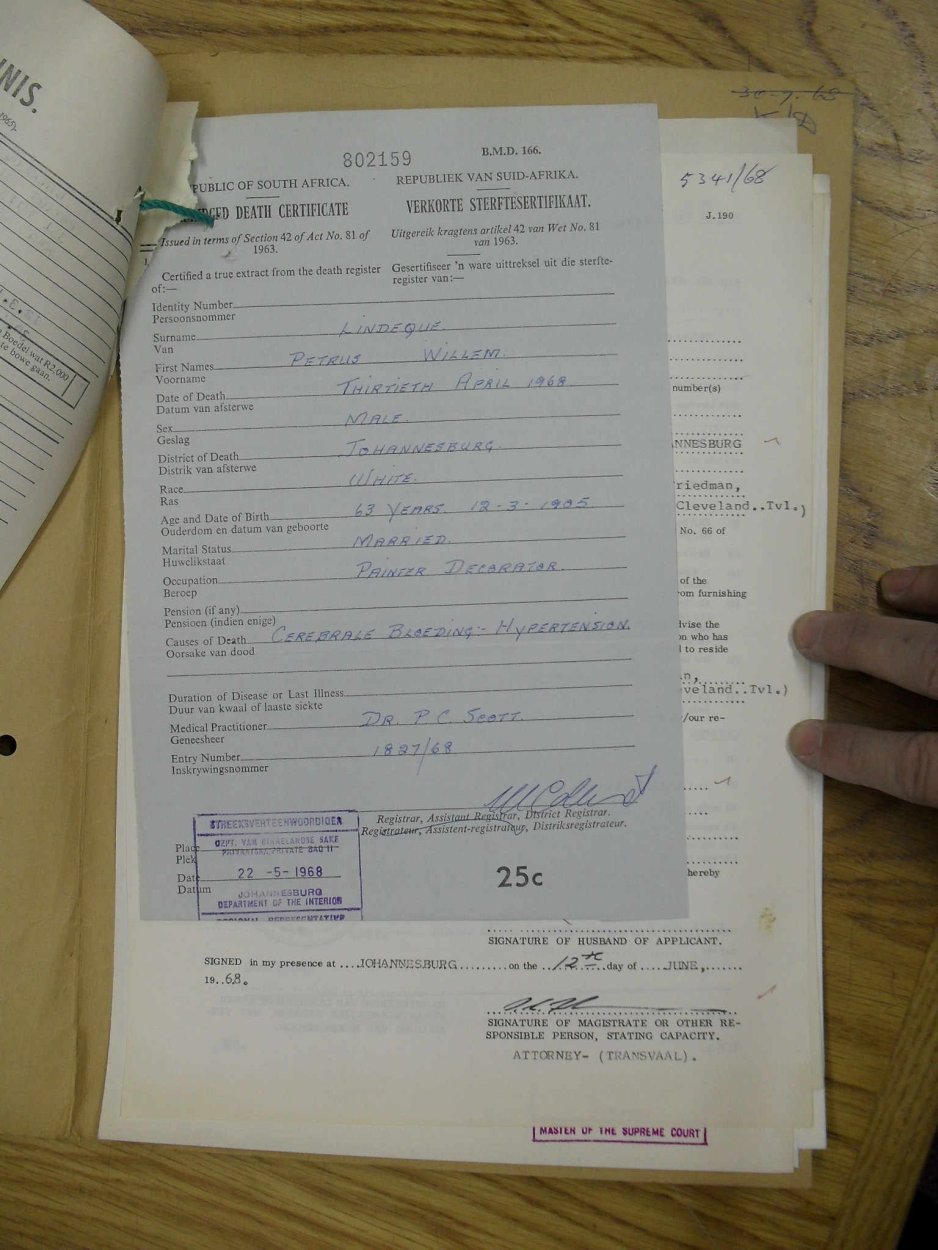 NIS.
1965).
Boedel wat R2,000
te bowe gaan.
30.7.68
5341/68
J.190
802159
B.M.D. 166.
PUBLIC OF SOUTH AFRICA.
REPUBLIEK VAN SUID-AFRIKA.
DEATH CERTIFICATE
VERKORTE STERFTESERTIFIKAAT.
Issued in terms of Section 42 of Act No. 81 of
1963.
Uitgereik kragtens artikel 42 van Wet No. 81
van 1963.
Certified a true extract from the death register
of:—
Gesertifiseer 'n ware uittreksel uit die sterfte-
register van:—
Identity Number
Persoonsnommer
Surname LINDEQUE.
Van
First Names PETRUS WILLEM.
Voorname
Date of Death THIRTIETH APRIL 1968.
Datum van afsterwe
Sex MALE.
Geslag
District of Death JOHANNESBURG.
Distrik van afsterwe
Race WHITE.
Ras
Age and Date of Birth 63 YEARS. 12-3-1905.
Ouderdom en datum van geboorte
Marital Status MARRIED.
Huwelikstaat
Occupation PAINTER DECORATOR.
Beroep
Pension (if any)
Pensioen (indien enige)
Causes of Death CEREBRALE BLOEDING:- HYPERTENSION.
Oorsake van dood
Duration of Disease or Last Illness
Duur van kwaal of laaste siekte
Medical Practitioner DR. P.C. SCOTT.
Geneesheer
Entry Number 1827/68
Inskrywingsnommer
Registrar, Assistant Registrar, District Registrar.
Registrateur, Assistent-registrateur, Distriksregistrateur.
STREEKSVERTEENWOORDIGER
DEPT. VAN BINNELANDSE SAKE
PRIVAATSAK/PRIVATE BAG 11
Place
Plek
22 -5- 1968
Date
Datum
JOHANNESBURG
DEPARTMENT OF THE INTERIOR
REGIONAL REPRESENTATIVE
25c
number(s)
NNESBURG
riedman,
Cleveland..Tvl.)
No. 66 of
of the
om furnishing
dvise the
n who has
l to reside
n,
veland..Tvl.)
/our re-
hereby
SIGNATURE OF HUSBAND OF APPLICANT.
SIGNED in my presence at ....JOHANNESBURG.........on the ..12th..day of ....JUNE,.......
19..68.
SIGNATURE OF MAGISTRATE OR OTHER RE-
SPONSIBLE PERSON, STATING CAPACITY.
ATTORNEY- (TRANSVAAL).
MASTER OF THE SUPREME COURT